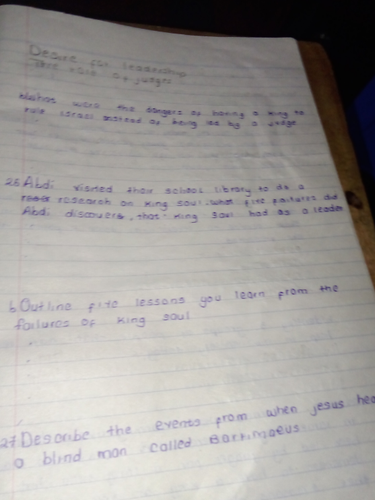 Desire for leadership
of judges
were the dangers of having a king to
rule israel instead of being led by a judge
25 Abdi visited their school library to do a
research on king saul. what five failures did
Abdi discovers, that king saul had as a leader
b. Outline five lessons you learn from the
failures of king saul
27 Describe the events from when jesus hea
a blind man called Bartimaeus.